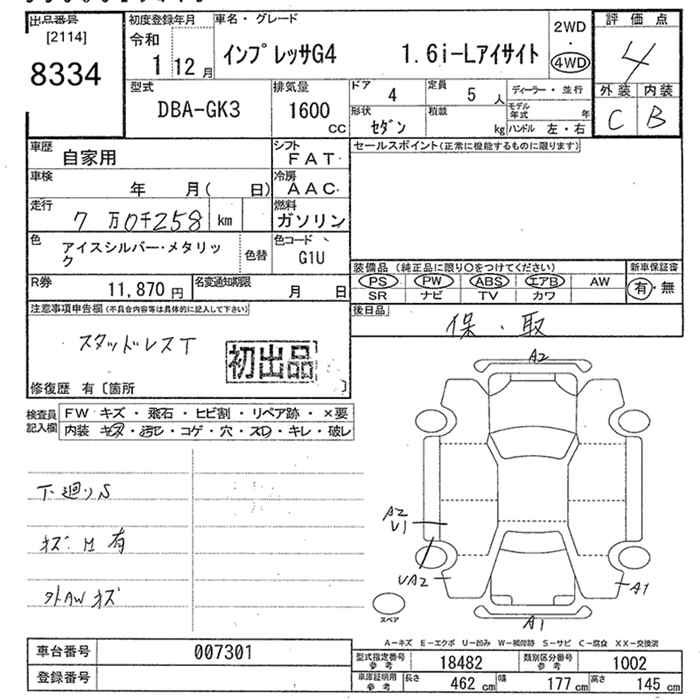 出品番号
[2114]
8334
初度登録年月
令和
1 12月
車名・グレード
インプレッサG4 1.6i-Lアイサイト
2WD
・
4WD
評価点
4
外装 内装
C B
型式
DBA-GK3
排気量
1600
CC
ドア 4
定員 5 人
ディーラー・並行
形状 セダン
積載 kg
モデル年式 年
ハンドル 左・右
車歴
自家用
シフト
FAT
セールスポイント(正常に機能するものに限ります)
車検
年 月( 日)
冷房
AAC
走行
7万0千258 km
燃料
ガソリン
色
アイスシルバー・メタリック
色替
色コード
G1U
装備品(純正品に限り○をつけてください)
PS PW ABS エアB AW
SR ナビ TV カワ
新車保証書
有・無
R券
11,870円
名変通知期限
月 日
後日品
保・取
注意事項申告欄(不具合内容等は具体的に記入して下さい)
スタッドレスT
初出品
修復歴 有〔箇所 〕
検査員記入欄
FW キズ・飛石・ヒビ割・リペア跡・×要
内装 キズ・汚レ・コゲ・穴・スレ・キレ・破レ
下廻りS
キズ凹有
外AWキズ
A2
A2
V1
UA2
A1
A1
スペア
A-キズ E-エクボ U-凹み W-補修跡 S-サビ C-腐食 XX-交換済
車台番号
007301
登録番号
型式指定番号
参考
18482
類別区分番号
参考
1002
車庫証明用
参考
長さ 462 cm
幅 177 cm
高さ 145 cm